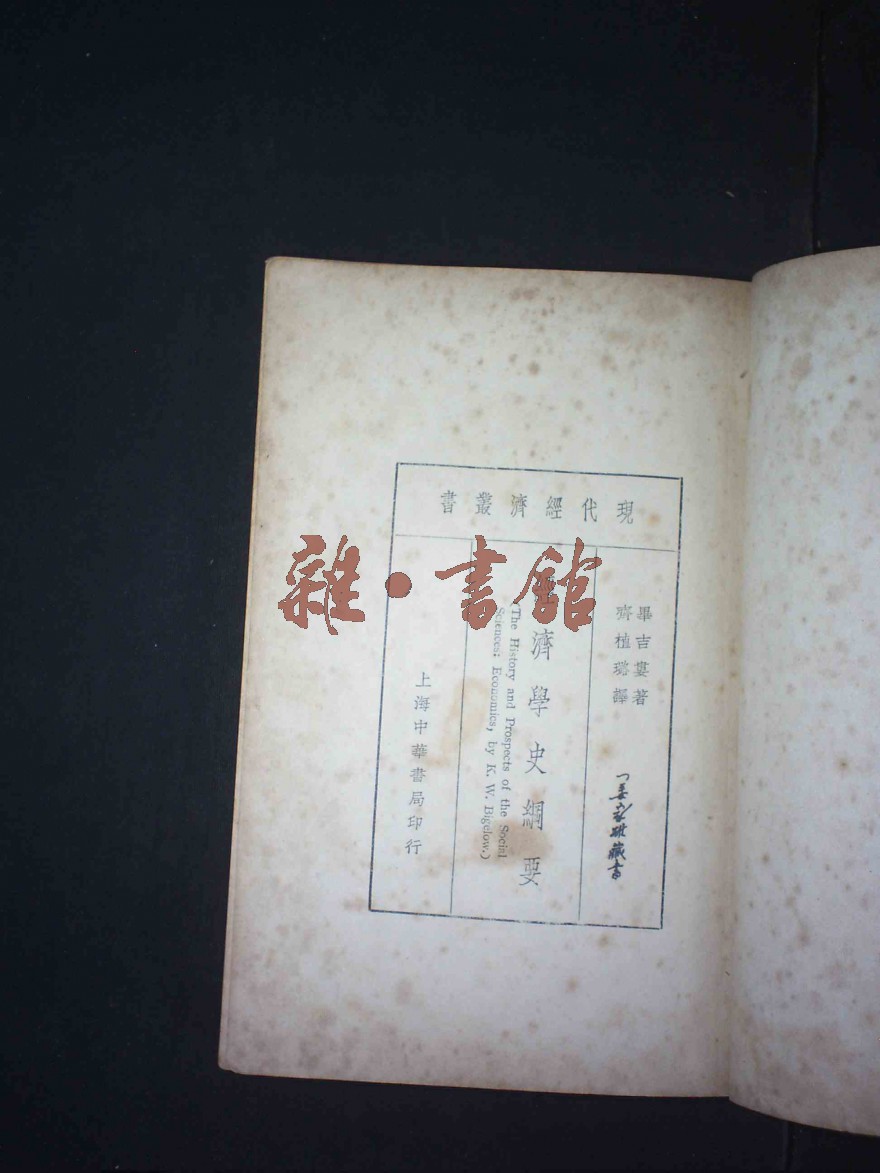 現代經濟叢書
畢吉婁著
齊植璐譯
濟學史綱要
(The History and Prospects of the Social
Sciences: Economics, by K. W. Bigelow.)
上海中華書局印行
藏書
雜·書館